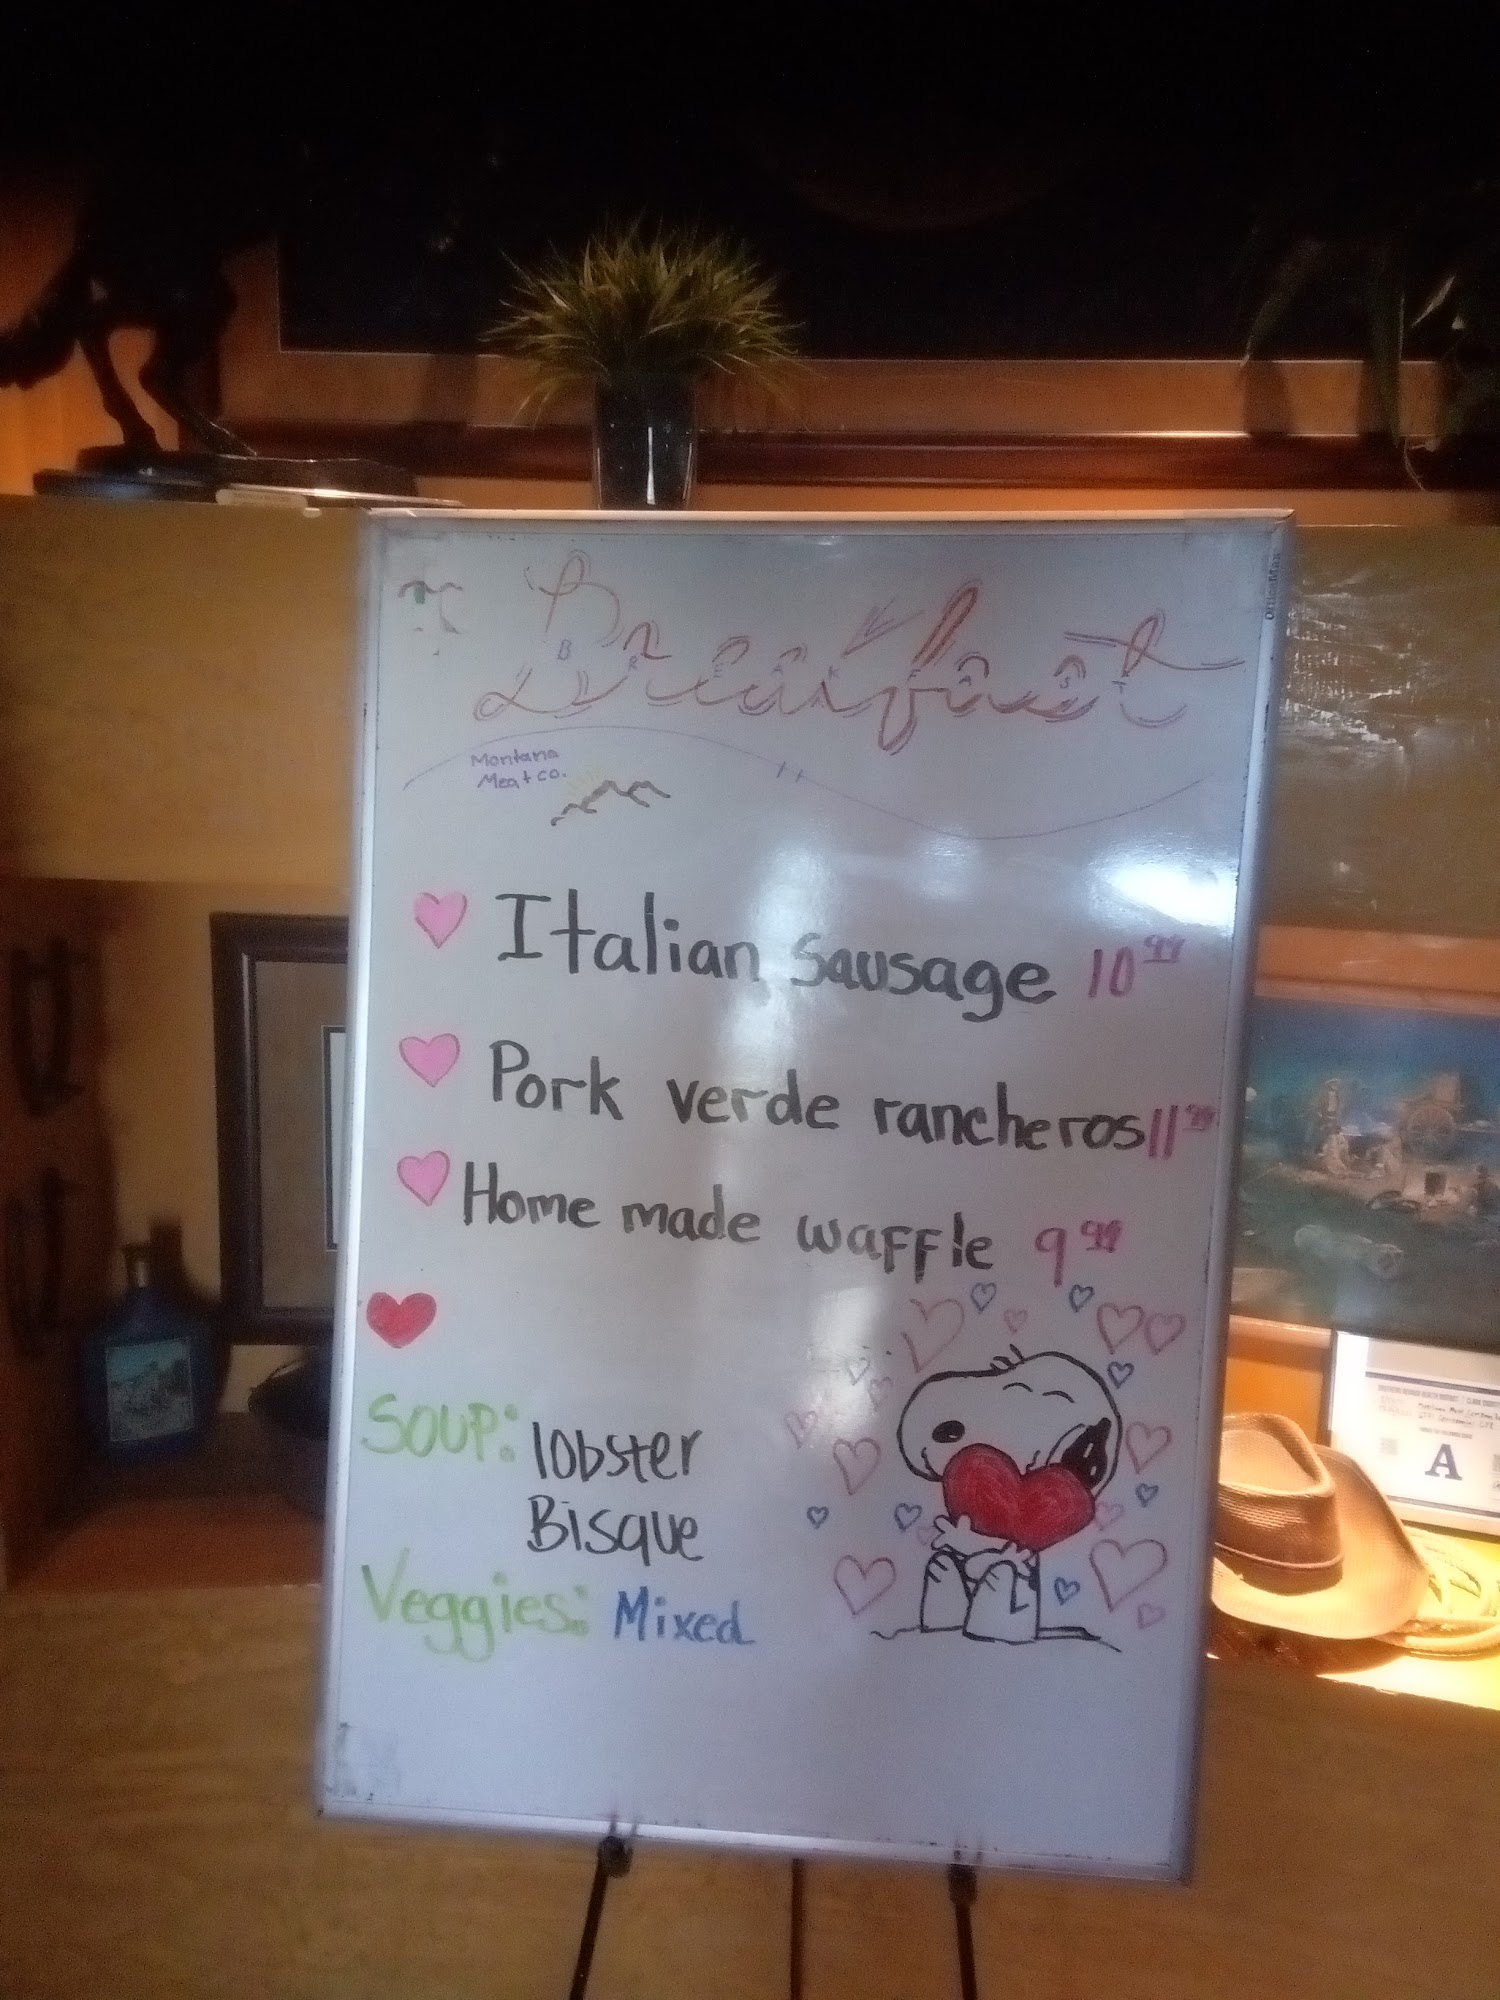 Breakfast
B R E A K F A S T
Montana
Meat co.
Italian sausage 10 99
Pork verde rancheros 11 99
Home made waffle 9 99
SOUP: lobster
Bisque
Veggies: Mixed
A